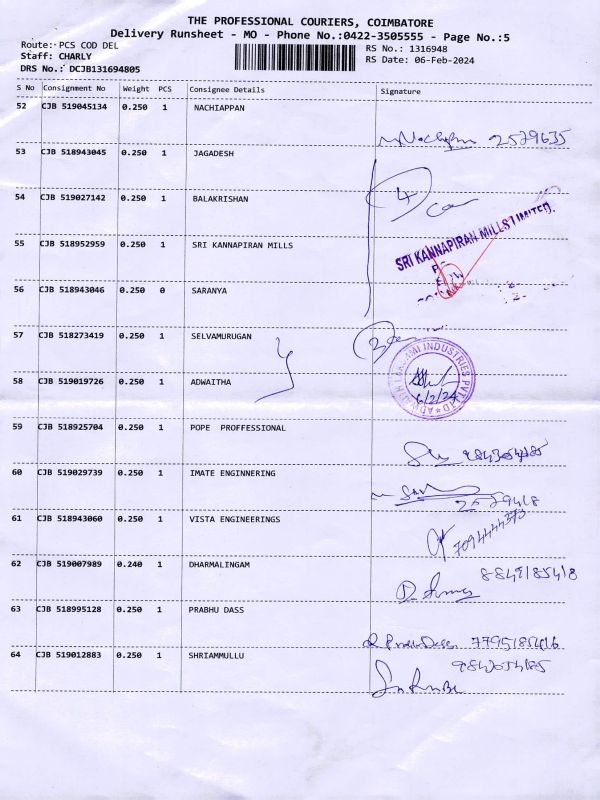 THE PROFESSIONAL COURIERS, COIMBATORE
Delivery Runsheet - MO - Phone No.:0422-3505555 - Page No.:5
Route: PCS COD DEL
RS No.: 1316948
Staff: CHARLY
RS Date: 06-Feb-2024
DRS No.: DCJB131694805
S No Consignment No Weight PCS Consignee Details Signature
52 CJB 519045134 0.250 1 NACHIAPPAN
Nachiappan 2579635
53 CJB 518943045 0.250 1 JAGADESH
54 CJB 519027142 0.250 1 BALAKRISHAN
4
55 CJB 518952959 0.250 1 SRI KANNAPIRAN MILLS
SRI KANNAPIRAN MILLS LIMITED.
56 CJB 518943046 0.250 0 SARANYA
57 CJB 518273419 0.250 1 SELVAMURUGAN
58 CJB 519019726 0.250 1 ADWAITHA
INDUSTRIES PVT LTD
6/2/24
59 CJB 518925704 0.250 1 POPE PROFFESSIONAL
60 CJB 519029739 0.250 1 IMATE ENGINNERING
2579418
61 CJB 518943060 0.250 1 VISTA ENGINEERINGS
7094444373
62 CJB 519007989 0.240 1 DHARMALINGAM
8849185418
63 CJB 518995128 0.250 1 PRABHU DASS
64 CJB 519012883 0.250 1 SHRIAMMULLU